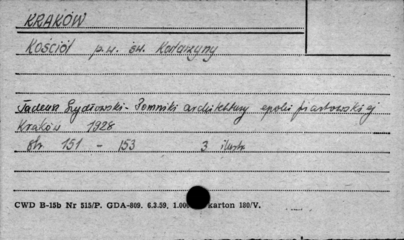 KRAKÓW
Kościół p.w. św. Katarzyny
Tadeusz Szydłowski - Pomniki architektury epoki piastowskiej
Kraków 1928
Str. 151 - 153 3 ilustr.
CWD B-15b Nr 515/P. GDA-809. 6.3.59. 1.000 karton 180/V.